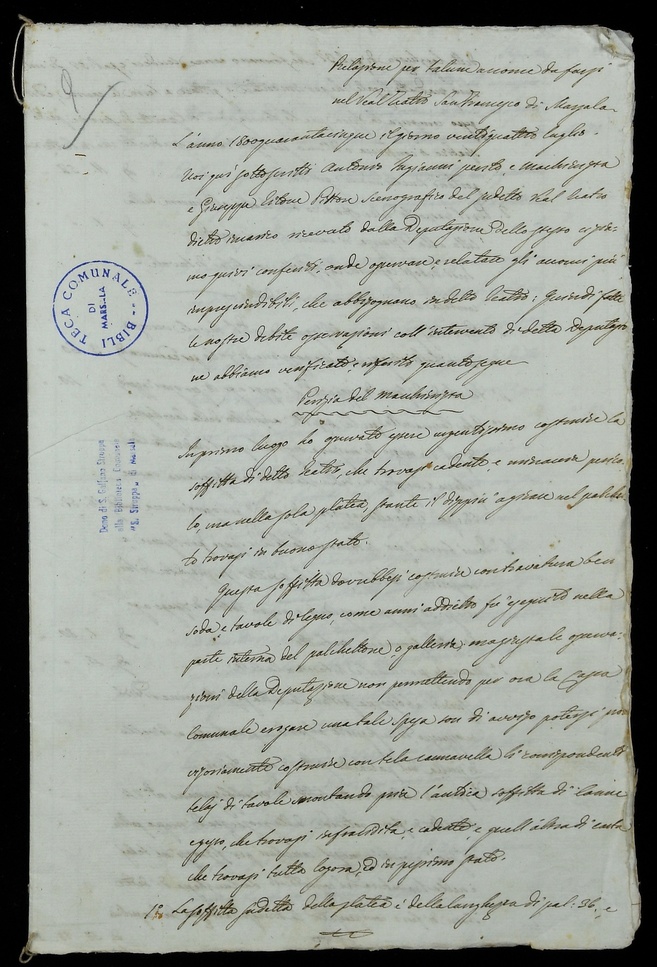 9
Relazione per talune accome da farsi
nel Real Teatro San Francesco di Marsala
L'anno 1800quarantacinque il giorno ventiquattro luglio.
Noi qui sottoscritti Antonio Ingianni perito e macchinista
e Giuseppe Pittore Scenografico del sudetto Real Teatro
dietro incarico ricevuto dalla Deputazione dello stesso ci sia-
mo quivi conferiti, onde operare, e relatare gli acconci più
imprescindibili, che abbisognano in detto Teatro: Quindi fatte
le nostre debite operazioni coll'intervento di detta Deputazio
ne abbiamo verificato, e riferito quanto segue
Perizia del macchinista
In primo luogo ho operato essere urgentissimo costruire la
soffitta di detto Teatro, che trovasi cadente e minaccia perico
lo, ma nella sola platea, stante il dippiù a girare nel palchet
to trovasi in buono stato.
Questa soffitta dovrebbesi costruire con travatura ben
soda, e tavole di legno, come anni addietro fu eseguito nella
parte interna del palchettone o galleria;
zioni della Deputazione non permettendo per ora la Cassa
Comunale erogare una tale spesa son di avviso potersi prov
visoriamente costruire con tela cannavella li corrispondenti
telaj di tavole smontando pria l'antica soffitta di canne
e gesso, che trovasi infracidita, e cadente e quell'altra di carta
che trovasi tutta logora, ed in pessimo stato.
1° La soffitta sudetta della platea è della larghezza di pal: 36. e
TECA COMUNALE - BIBLIO
DI
MARSALA
Dono di S. Struppa
alla Biblioteca Comunale
"S. Struppa" di Marsala